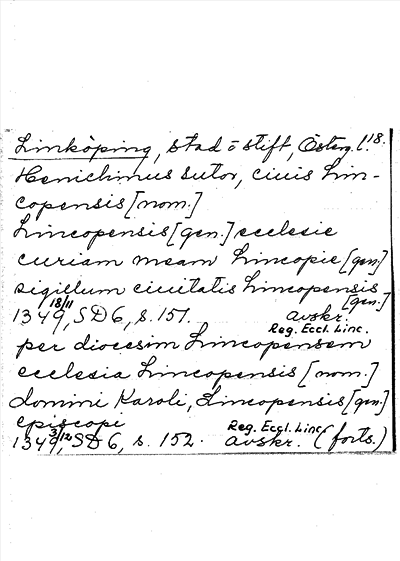 Linköping, stad o stift, Österg. l. 18.
Henichinus sutor, ciuis Lin-
copensis [nom.]
Lincopensis [gen.] ecclesie
curiam meam Lincopie [gen.]
sigillum ciuitatis Lincopensis [gen.]
1349 18/11, SD 6, s. 151. avskr. Reg. Eccl. Linc.
per diocesim Lincopensem
ecclesia Lincopensis [nom.]
domini Karoli, Lincopensis [gen.]
episcopi
1349 3/12, SD 6, s. 152. Reg. Eccl. Linc. avskr. (forts.)